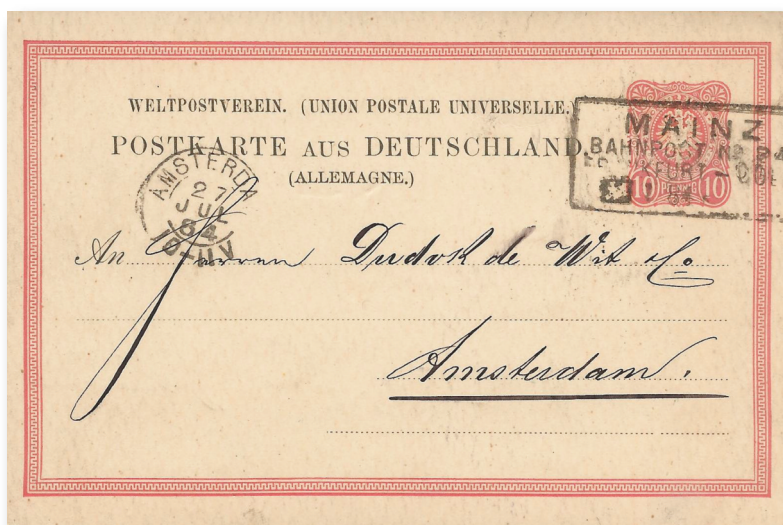 WELTPOSTVEREIN. (UNION POSTALE UNIVERSELLE.)
POSTKARTE AUS DEUTSCHLAND.
(ALLEMAGNE.)
MAINZ
BAHNPOST
10 PFENNIG 10
AMSTERDA
27
JUL
84
10-11V
An Herren Dudok de Wit & Co
Amsterdam.